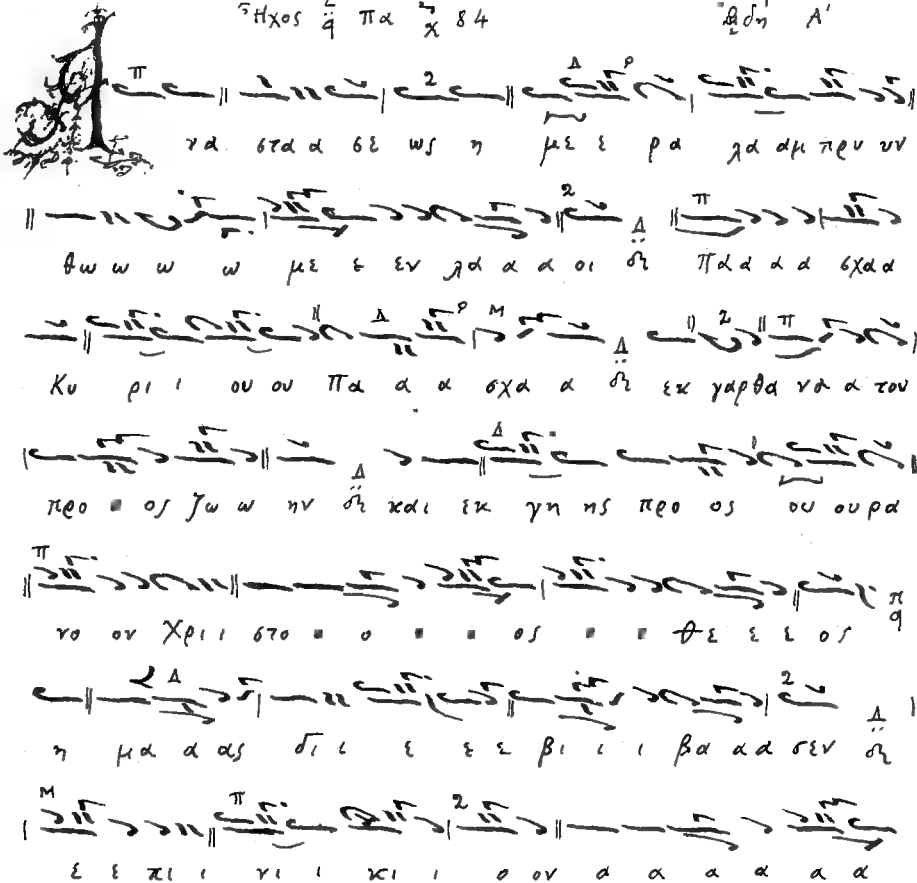 Ἦχος q πα χ 84 ᾨδὴ Α'
να στα α σε ως η με ε ρα λα αμ πρυ υν
θω ω ω ω με ε εν λα α α οι δι Πα α α α σχα α
Κυ ρι ι ου ου Πα α α σχα α δι εκ γαρ θα να α τον
προ ος ζω ω ην δι και εκ γη ης προ ος ου ου ρα
νο ον Χρι ι στο ο ος θε ε ε ος
η μα α ας δι ι ε ε ε βι ι ι ι βα α α σεν δι
ε ε πι ι νι ι κι ι ο ον α α α α α α